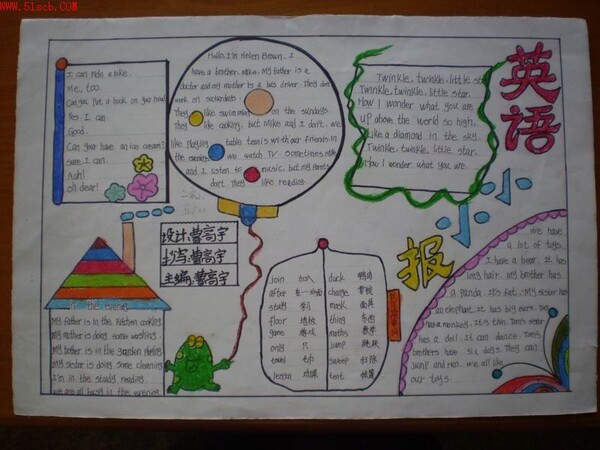 www.51scb.com
英语小小报
I can ride a bike.
Me, too.
Can you put a book on your head
Yes, I can
Good.
Can you have an ice cream?
Sure I can.
Ash!
Oh dear!
Hello, I'm Helen Brown. I
have a brother, Mike. My father is a
doctor and my mother is a bus driver. They don't
work on saturdays
They like swimming on the sundays
They like cooking, but Mike and I don't. we
like playing table tennis with our friends. In
the we watch TV. Sometimes Mike
and I listen to music, but my parents
don't. They like reading
Twinkle, twinkle, little star
Twinkle, twinkle, little star.
How I wonder what you are
up above the world so high.
Like a diamond in the sky.
Twinkle, twinkle, little star.
How I wonder what you are.
设计:曹高宇
抄写:曹高宇
主编:曹高宇
In the evening
My father is in the kitchen cooking
My mother is doing some washing.
My brother is in the garden
My sister is doing some cleaning
I'm in the study reading.
we are all busy in the evening
join 加入 duck 鸭肉
after 在…后面 change
study 学习 mask 面具
floor 地板 thing 东西
game 游戏 maths 数学
only 只 jump 跳跃
travel sweep 扫除
lesson 功课 tent 帐篷
We have
a lot of toys.
I have a bear. It has
long hair. My brother has
a panda. It's fat. My sister has
an elephant. It has big ears. Tom
has a monkey. It's thin. Tom's sister
has a doll. It can dance. Tom's
brothers have six dogs. They can
jump and run. we all like
our toys.